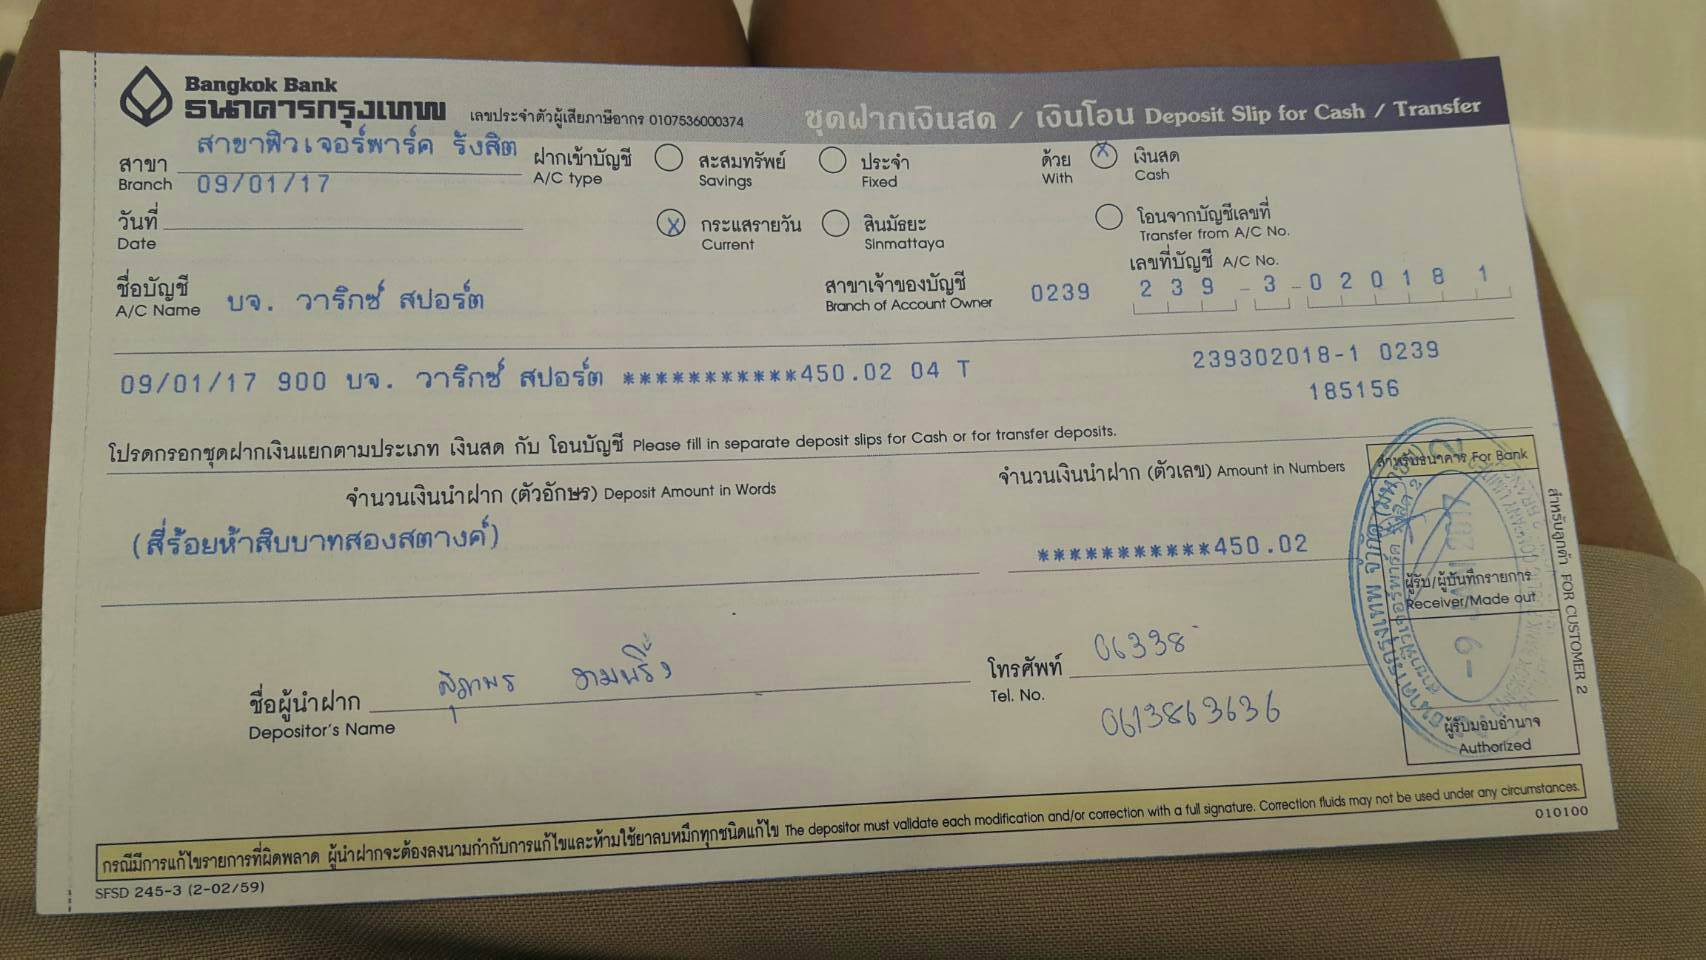 Bangkok Bank
ธนาคารกรุงเทพ
เลขประจำตัวผู้เสียภาษีอากร 0107536000374
ชุดฝากเงินสด / เงินโอน Deposit Slip for Cash / Transfer
สาขา สาขาฟิวเจอร์พาร์ค รังสิต
Branch 09/01/17
ฝากเข้าบัญชี
A/C type
สะสมทรัพย์
Savings
ประจำ
Fixed
ด้วย
With
X เงินสด
Cash
วันที่
Date
X กระแสรายวัน
Current
สินมัธยะ
Sinmattaya
โอนจากบัญชีเลขที่
Transfer from A/C No.
ชื่อบัญชี
A/C Name บจ. วาริกซ์ สปอร์ต
สาขาเจ้าของบัญชี
Branch of Account Owner 0239
เลขที่บัญชี A/C No.
239-3-02018 1
09/01/17 900 บจ. วาริกซ์ สปอร์ต ***********450.02 04 T
239302018-1 0239
185156
โปรดกรอกชุดฝากเงินแยกตามประเภท เงินสด กับ โอนบัญชี Please fill in separate deposit slips for Cash or for transfer deposits.
จำนวนเงินนำฝาก (ตัวอักษร) Deposit Amount in Words
จำนวนเงินนำฝาก (ตัวเลข) Amount in Numbers
สำหรับธนาคาร For Bank
(สี่ร้อยห้าสิบบาทสองสตางค์)
***********450.02
ผู้รับ/ผู้บันทึกรายการ
Receiver/Made out
สำหรับลูกค้า FOR CUSTOMER 2
ชื่อผู้นำฝาก
Depositor's Name
โทรศัพท์ 06338
Tel. No.
0613863636
ผู้รับมอบอำนาจ
Authorized
กรณีมีการแก้ไขรายการที่ผิดพลาด ผู้นำฝากจะต้องลงนามกำกับการแก้ไขและห้ามใช้ยาลบหมึกทุกชนิดแก้ไข The depositor must validate each modification and/or correction with a full signature. Correction fluids may not be used under any circumstances.
SFSD 245-3 (2-02/59)
010100